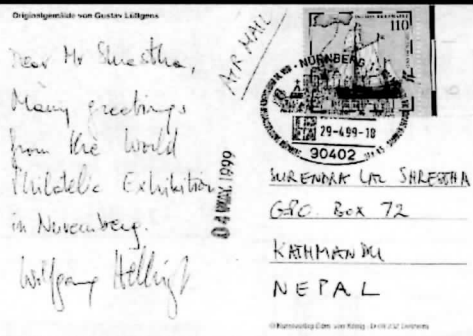 Originalgemälde von Gustav Lüttgens
AIR MAIL
110
Dear Mr Shrestha,
Many greetings
from the World
Philatelic Exhibition
in Nuremberg.
Wolfgang
NÜRNBERG
29-4.99-18
90402
SURENDRA LAL SHRESTHA
G.P.O. Box 72
KATHMANDU
NEPAL